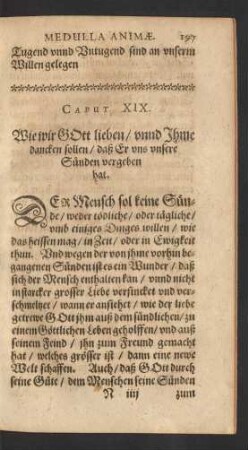 MEDULLA ANIMÆ. 197
Tugend vnnd Vntugend sind an vnserm
Willen gelegen
CAPUT XIX.
Wie wir GOtt lieben / vnnd Ihme
dancken sollen / daß Er vns vnsere
Sünden vergeben
hat.
DER Mensch sol keine Sün-
de / weder tödliche / oder tägliche /
vmb einiges Dinges willen / wie
das heissen mag / in Zeit / oder in Ewigkeit
thun. Vnd wegen der von jhme vorhin be-
gangenen Sünden ist es ein Wunder / daß
sich der Mensch enthalten kan / vnnd nicht
in starcker grosser Liebe versincket vnd ver-
schmeltzet / wann er ansihet / wie der liebe
getrewe GOtt jhm auß dem sündlichen / zu
einem Göttlichen Leben geholffen / vnd auß
seinem Feind / jhn zum Freund gemacht
hat / welches grösser ist / dann eine newe
Welt schaffen. Auch / daß GOtt durch
seine Güte / dem Menschen seine Sünden
N iiij zum